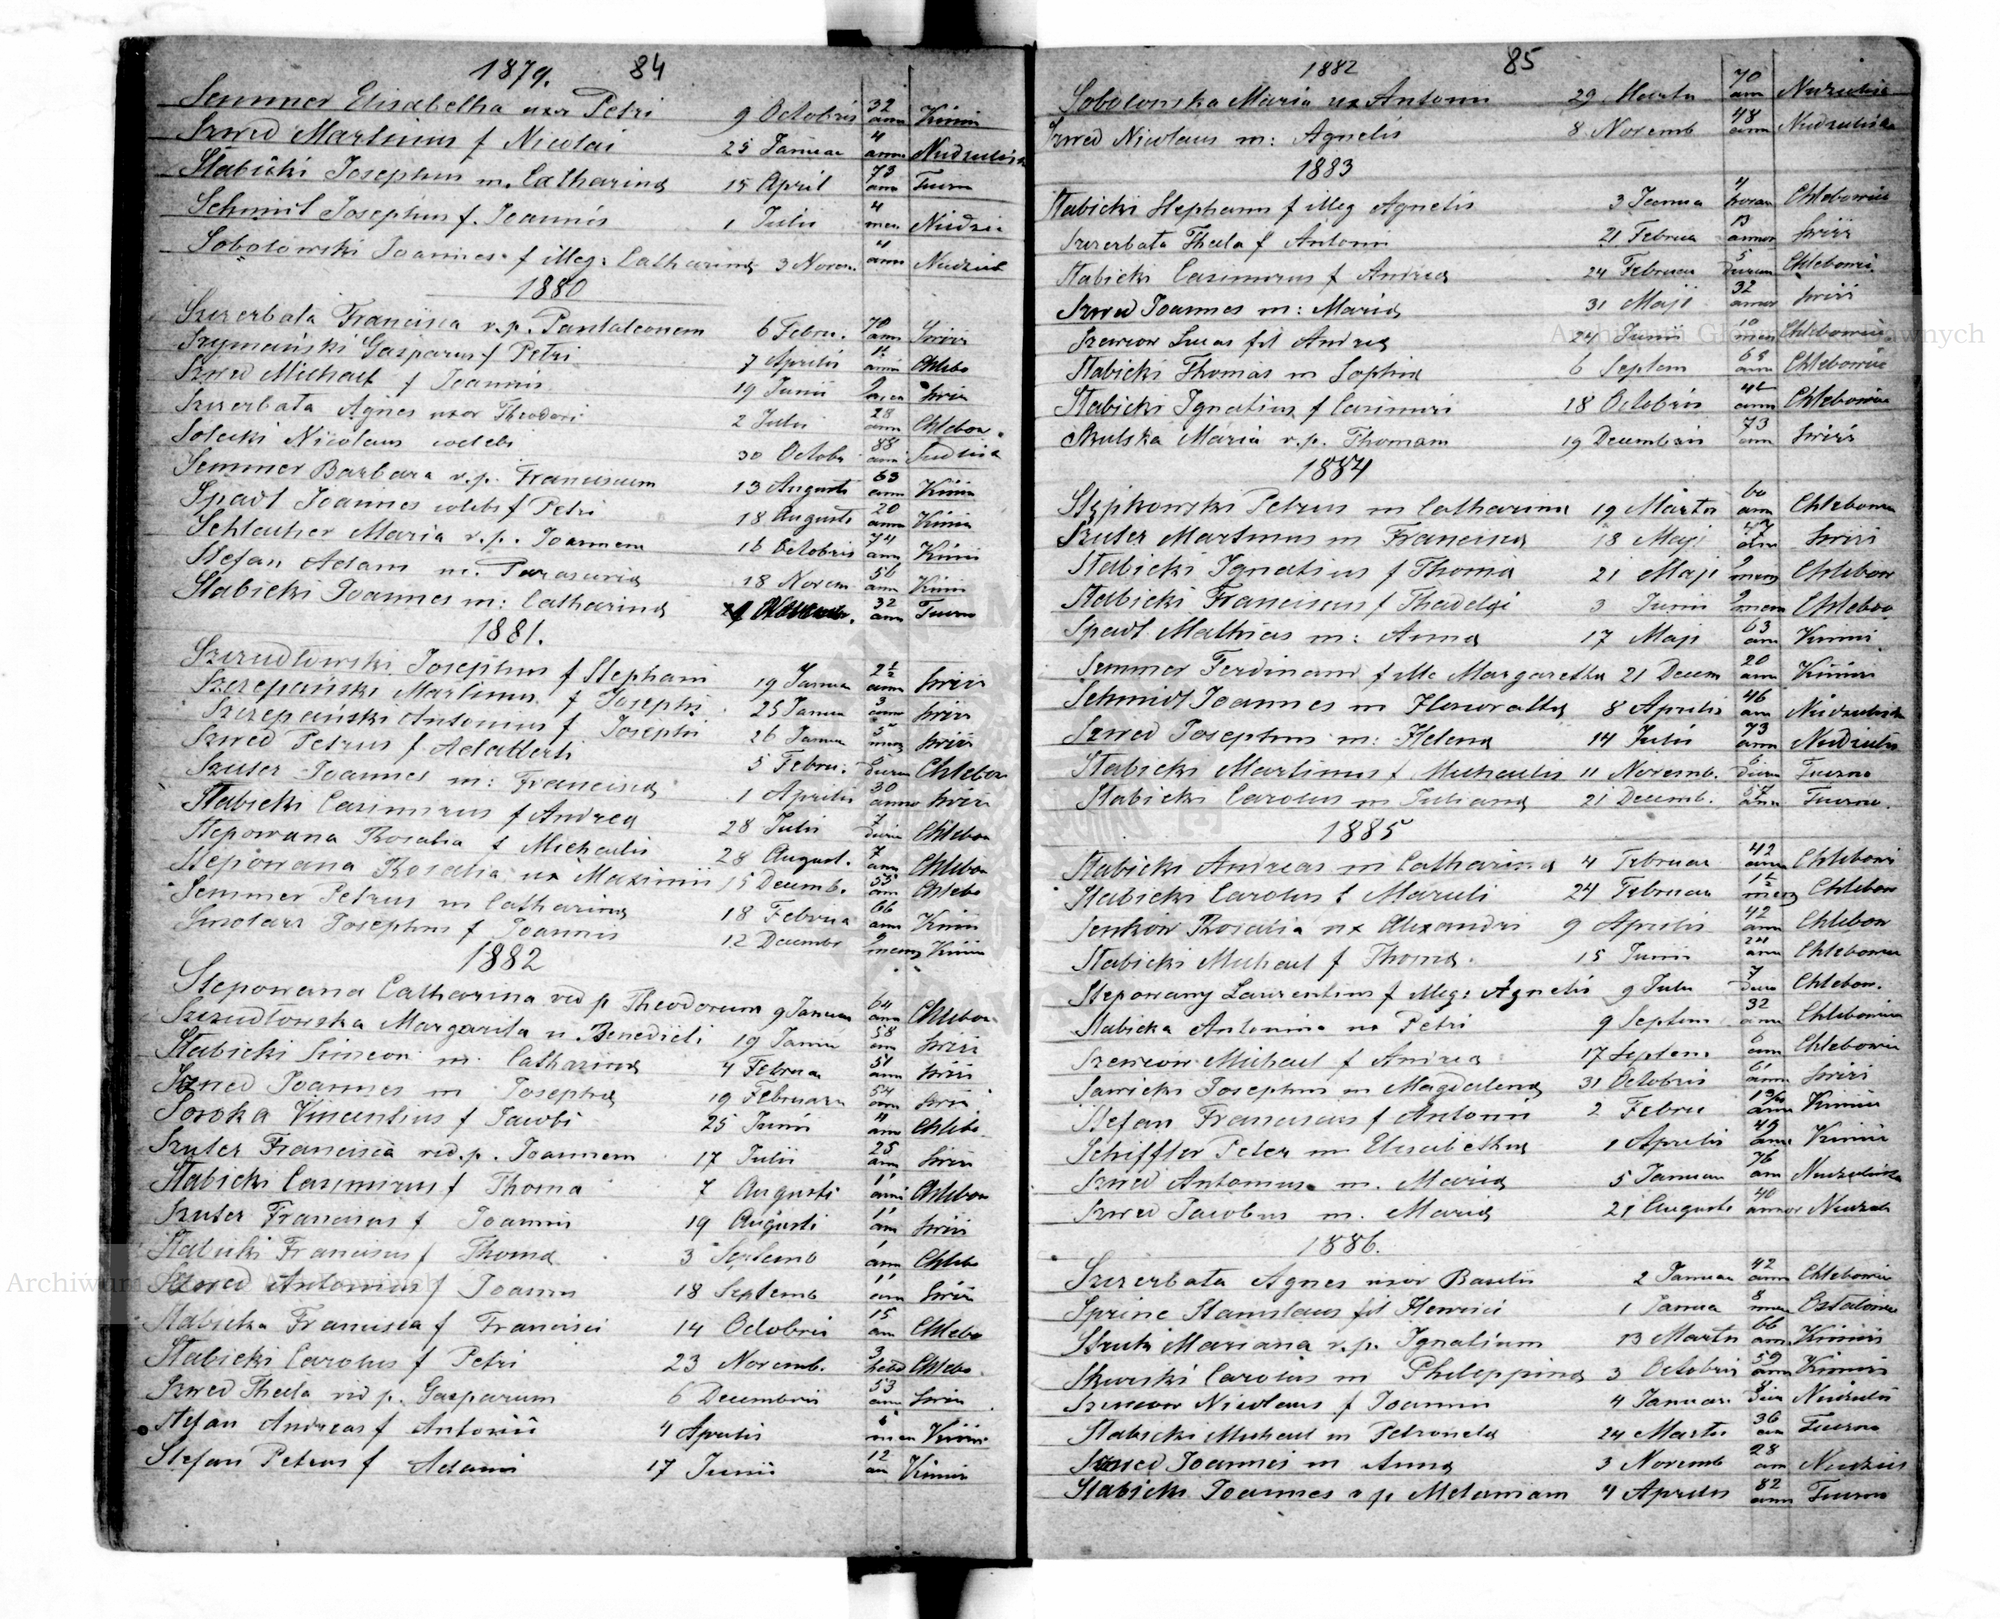 1879. 84
Semmer Elisabetha uxor Petri 9 Octobris 32 ann Kimir
Szwed Martinus f Nicolai 25 Januar 4 ann Niedzieliska
Stabicki Josephus m. Catharina 15 April 73 ann Tuczna
Schmid Josephus f. Joannis 1 Julii 4 men Niedzie
Sobolowski Joannes f illeg: Catharina 3 Novem. 4 ann Niedziel
1880
Szczerbata Francisca v.p. Pantaleonem 6 Febru. 70 ann Swirz
Szymański Gasparus f Petri 7 Aprilis 1½ ann Chlebo
Szwed Michael f Joannis 19 Junii 9 Swirz
Szczerbata Agnes uxor Theodori 2 Julii 28 ann Chlebow.
Solecki Nicolaus coelebs 30 Octobr 88 ann
Semmer Barbara v.p. Franciscum 13 Augusti 63 ann Kimir
Spadt Joannes celebs f Petri 18 Augusti 20 ann Kimir
Schleicher Maria v.p. Joannem 16 Octobris 74 ann Kimir
Stefan Adam m. Parascevia 18 Novem 56 ann Kimir
Stabicki Joannes m: Catharina 32 ann Tuczna
1881.
Szczudłowski Josephus f Stephani 19 Janua 2½ ann Swirz
Szczepański Martinus f Josephi 25 Janua 3 ann Swirz
Szczepański Antonius f Josephi 26 Janua 5 mens Swirz
Szwed Petrus f Adalberti 5 Febru. dierum Chlebow
Szuter Joannes m: Francisca 1 Aprilis 30 anno Swirz
Stabicki Casimirus f Andrea 28 Julii 7 dierum Chlebow
Stepowana Rosalia f Michaelis 28 August. 7 ann Chlebow
Stepowana Rosalia ux Maximii 15 Decemb. 55 ann Chlebo
Semmer Petrus m Catharina 18 Februa 66 ann Kimir
Smolarz Josephus f Joannis 12 Decembr 9 mens Kimir
1882
Stepowana Catharina vid p Theodorum 9 Janua 64 ann Chlebow
Szczudłowska Margarita u. Benedicti 19 Janu 58 ann Swirz
Stabicki Simeon m. Catharina 4 Februa 51 ann Swirz
Szwed Joannes m Josepha 19 Februaru 54 ann Swirz
Soroka Vincentius f Jacobi 25 Junii 4 ann Chlebo
Szuter Francisca vid. p. Joannem 17 Julii 25 ann Swirz
Stabicki Casimirus f Thoma 7 Augusti 1½ ann Chlebow
Szuter Franciscus f Joannis 19 Augusti 1½ ann Swirz
Stabicki Franciscus f Thoma 3 Septemb 1 ann Chlebo
Szwed Antonius f Joannis 18 Septemb 1½ ann Swirz
Stabicka Francisca f Francisci 14 Octobris 15 an Chlebo
Stabicki Carolus f Petri 23 Novemb. 3 hebd Chlebo.
Szwed Thecla vid p. Gasparum 6 Decembris 53 ann Swirz
Stefan Andreas f Antonii 4 Aprilis 6 men Kimir
Stefan Petrus f Adami 17 Junii 12 an Kimir
1882 85
Sobolowska Maria ux Antonii 29 Martii 70 ann Niedzielisk
Szwed Nicolaus m: Agnetis 8 Novemb 48 ann Niedzieliska
1883
Stabicki Stephanus f illeg Agnetis 3 Janua 4 horar Chlebowic
Szczerbata Thecla f Antonii 21 Februa 13 annor Swirz
Stabicki Casimirus f Andrea 24 Februar 5 dierum Chlebowic
Szwed Joannes m: Maria 31 Maji 32 annor Swirz
Szewciow Lucas fil Andrea 24 Junii 10 mens Chlebowic
Stabicki Thomas m Sophia 6 Septem 65 ann Chlebowic
Stabicki Ignatius f Casimiri 18 Octobris 4½ ann Chlebowic
Skulska Maria v.p. Thomam 19 Decembris 73 ann Swirz
1884
Stępkowski Petrus m Catharina 19 Martii 60 ann Chlebowic
Szuter Martinus m Francisca 18 Maji ann Swirz
Stabicki Ignatius f Thoma 21 Maji 9 mens Chlebow
Stabicki Franciscus f Thadei 3 Junii 9 mens Chlebow
Spadt Mathias m: Anna 17 Maji 63 ann Kimir.
Semmer Ferdinand f ille Margaretha 21 Decem 20 ann Kimir
Schmidt Joannes m Honoratha 8 Aprilis 46 ann Niedzielisk
Szwed Josephus m: Helena 14 Julii 73 ann Niedzielis
Stabicki Martinus f Michaelis 11 Novemb. 6 dierum Tuczna
Stabicki Carolus m Juliana 21 Decemb. 57 ann Tuczna.
1885
Stabicki Andreas m Catharina 4 Februar 42 ann Chlebowi
Stabicki Carolus f Maruli 24 Februar 1½ mens Chlebow
Senkow Rosalia ux Alexandri 9 Aprilis 42 ann Chlebow
Stabicki Michael f Thoma. 15 Junii 24 ann Chlebowic
Stepowany Laurentius f illeg: Agnetis 9 Julii 7 dies Chlebow.
Stabicka Antonina ux Petri 9 Septem 32 ann Chlebowic
Szewciow Michael f Andrea 17 Septem 6 ann Chlebowic
Sawicki Josephus m Magdalena 31 Octobris 61 ann Swirz
Stefan Franciscus f Antonii 2 Febru ann Kimir
Schiffler Peter m Elisabetha 1 Aprilis 49 ann Kimir
Szwed Antonius m. Maria 5 Januar 76 ann Niedzieliska
Szwed Jacobus m. Maria 21 Augusti 40 annor Niedziel
1886.
Szczerbata Agnes uxor Basilii 2 Januar 42 ann Chlebowic
Sprinc Stanislaus fil Henrici 1 Janua 8 mens Ostalowic
Struk Mariana v.p. Ignatium 13 Martii 66 ann Kimir
Skurski Carolus m Philippina 3 Octobris 59 ann Kimir
Szewciow Nicolaus f Joannis 4 Januar. 8 dies Niedzielis
Stabicki Michael m Petronela 24 Martii 36 an Tuczna
Szwed Joannes m Anna 3 Novemb 28 ann Niedziel
Stabicki Joannes v p. Melaniam 4 Aprilis 82 ann Tuczna